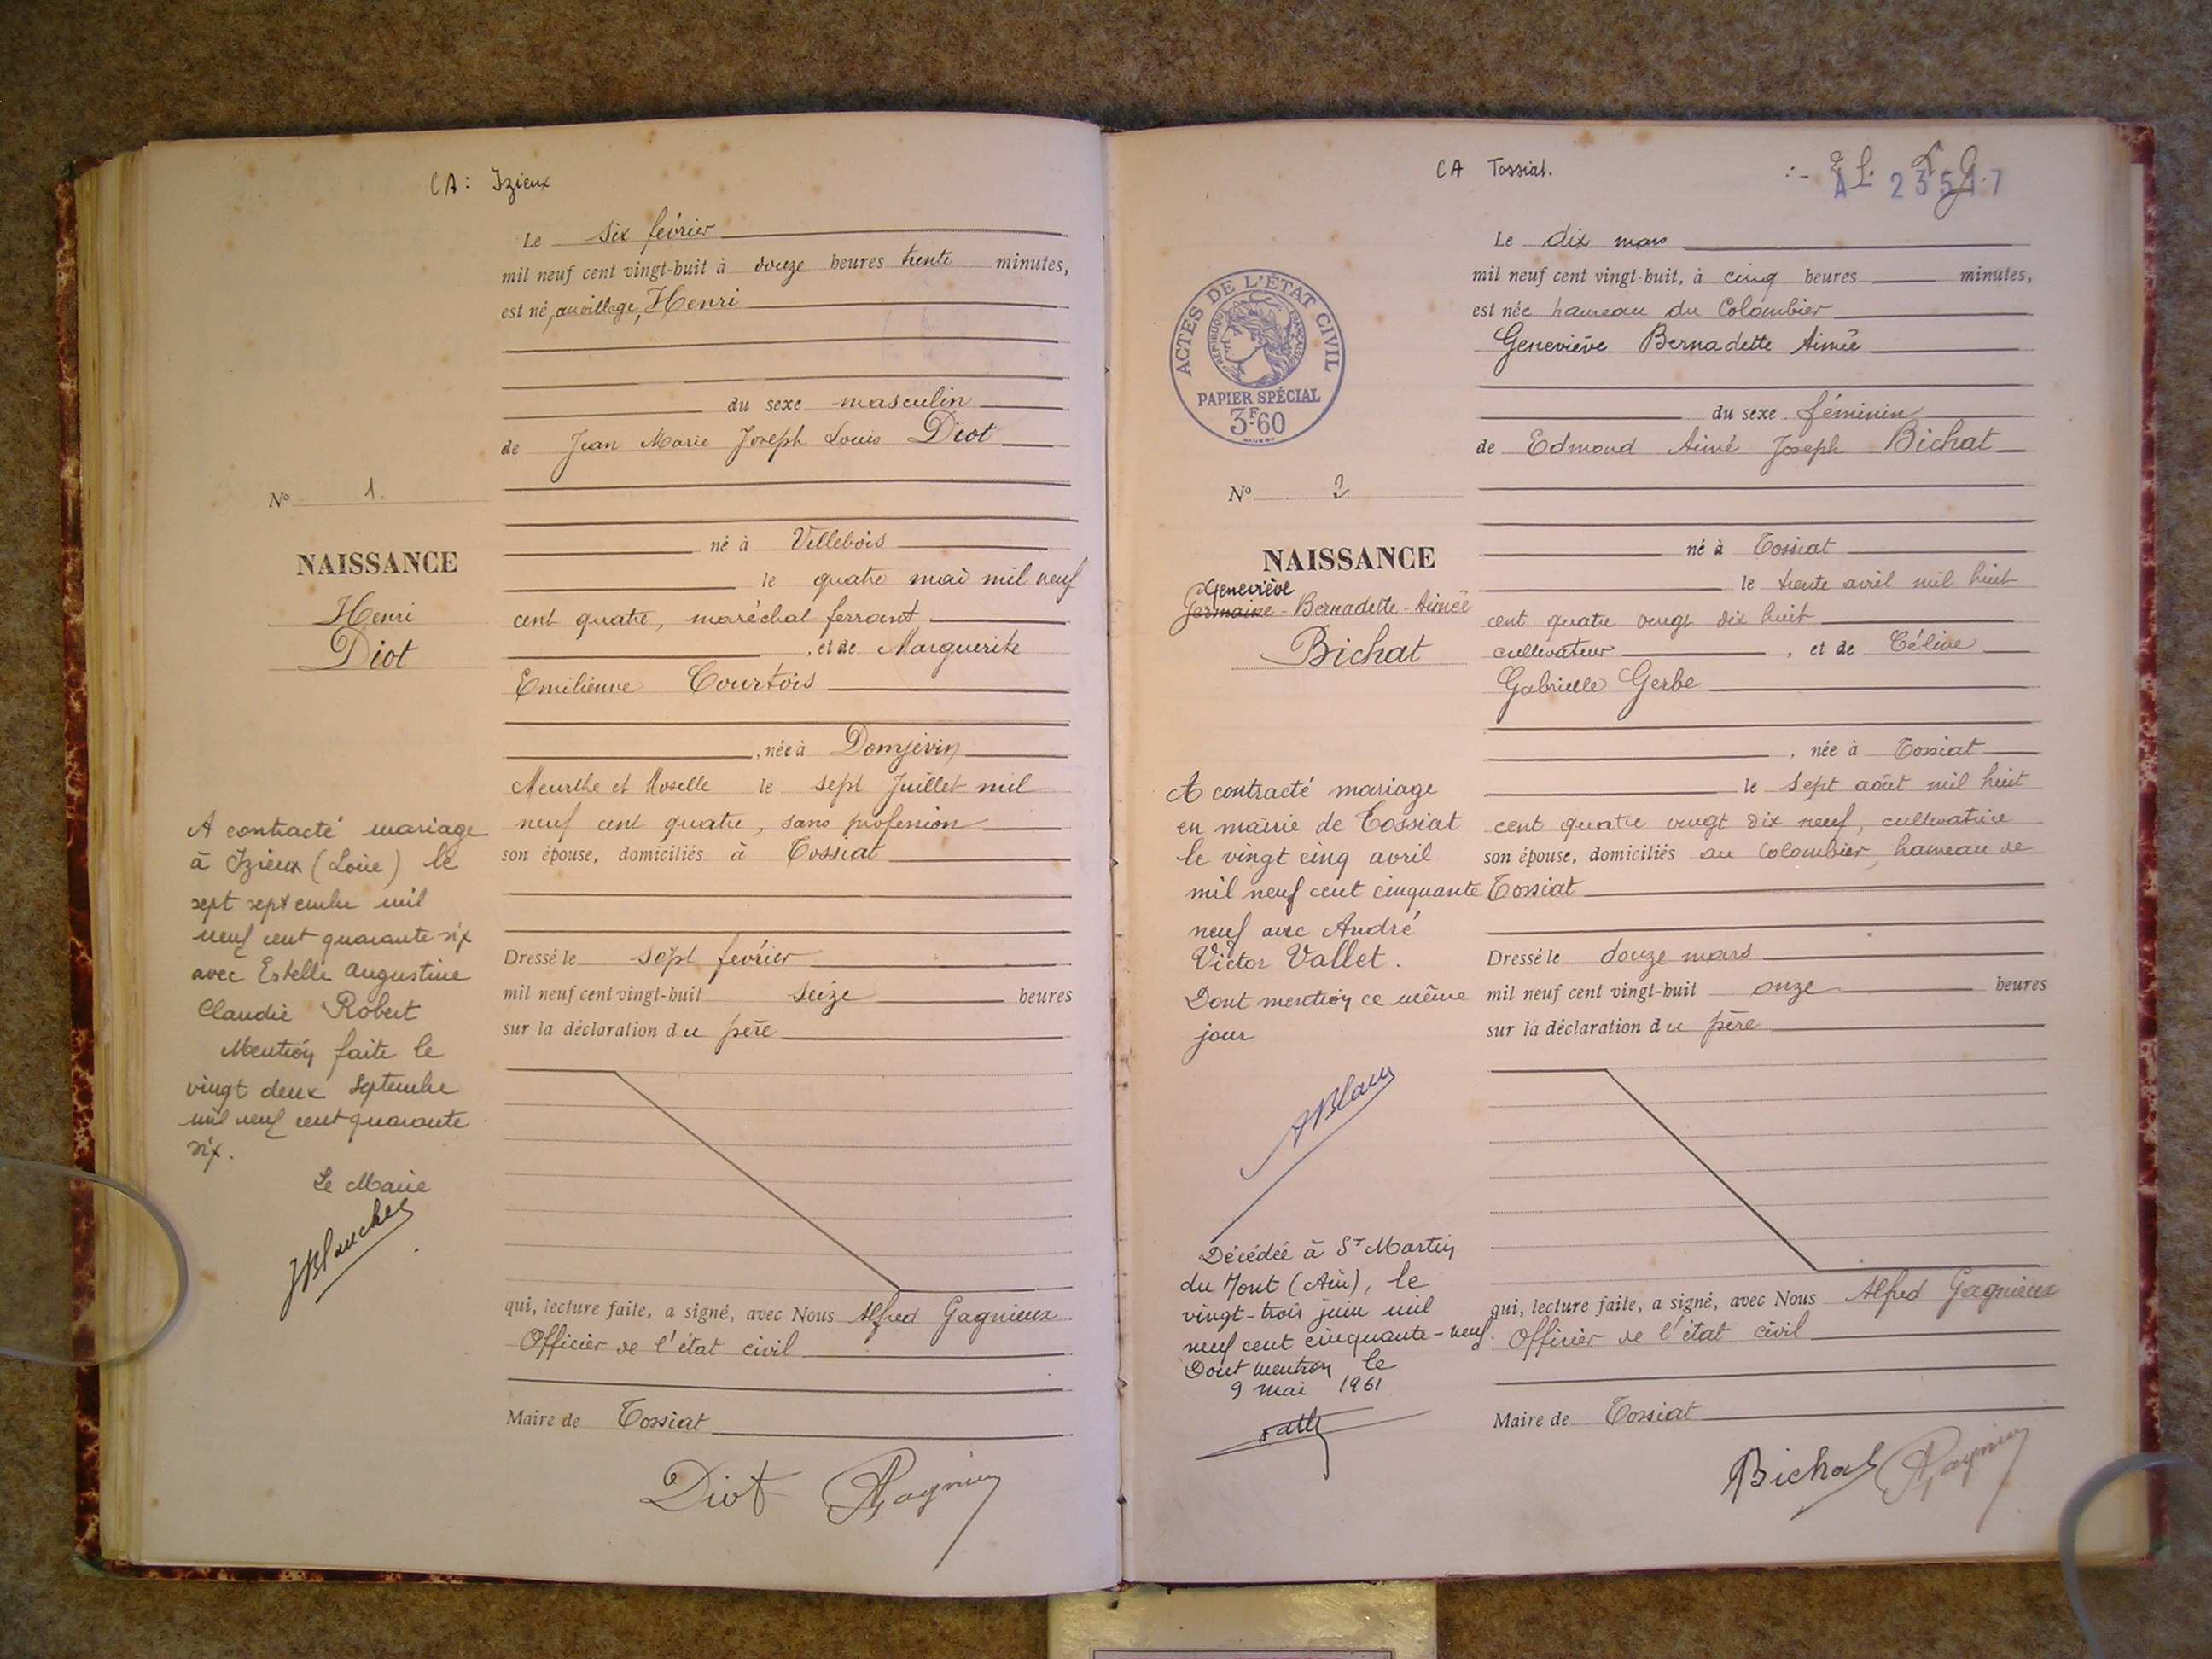 CA : Izieux
Le six février
mil neuf cent vingt-huit à douze heures trente minutes,
est né, au village, Henri
du sexe masculin
de Jean Marie Joseph Louis Diot
N° 1.
né à Villebois
NAISSANCE
le quatre mai mil neuf
Henri
cent quatre, maréchal ferrant
Diot
, et de Marguerite
Emilienne Courtois
, née à Domjévin
Meurthe et Moselle le sept Juillet mil
neuf cent quatre, sans profession
son épouse, domiciliés à Tossiat
A contracté mariage
à Izieux (Loire) le
sept septembre mil
neuf cent quarante six
avec Estelle Augustine
Claudie Robert
Mention faite le
vingt deux Septembre
mil neuf cent quarante
six.
Le Maire
JBlanchet
Dressé le sept février
mil neuf cent vingt-huit seize heures
sur la déclaration du père
qui, lecture faite, a signé, avec Nous Alfred Gagnieux
Officier de l'état civil
Maire de Tossiat
Diot
CA Tossiat.
Le dix mars
mil neuf cent vingt-huit, à cinq heures minutes,
est née hameau du Colombier
Geneviève Bernadette Aimée
ACTES DE L'ÉTAT CIVIL
RÉPUBLIQUE FRANÇAISE
PAPIER SPÉCIAL
3F60
du sexe féminin
de Edmond Aimé Joseph Bichat
N° 2
né à Tossiat
NAISSANCE
le trente avril mil huit
Geneviève
Germaine - Bernadette - Aimée
cent quatre vingt dix huit
Bichat
cultivateur , et de Céline
Gabrielle Gerbe
, née à Tossiat
le sept août mil huit
cent quatre vingt dix neuf, cultivatrice
son épouse, domiciliés au Colombier, hameau de
Tossiat
A contracté mariage
en mairie de Tossiat
le vingt cinq avril
mil neuf cent cinquante
neuf avec André
Victor Vallet.
Dont mention ce même
jour
Décédée à St Martin
du Mont (Ain), le
vingt-trois juin mil
neuf cent cinquante-neuf.
Dont mention le
9 mai 1961
Dressé le douze mars
mil neuf cent vingt-huit onze heures
sur la déclaration du père
qui, lecture faite, a signé, avec Nous Alfred Gagnieux
Officier de l'état civil
Maire de Tossiat
Bichat